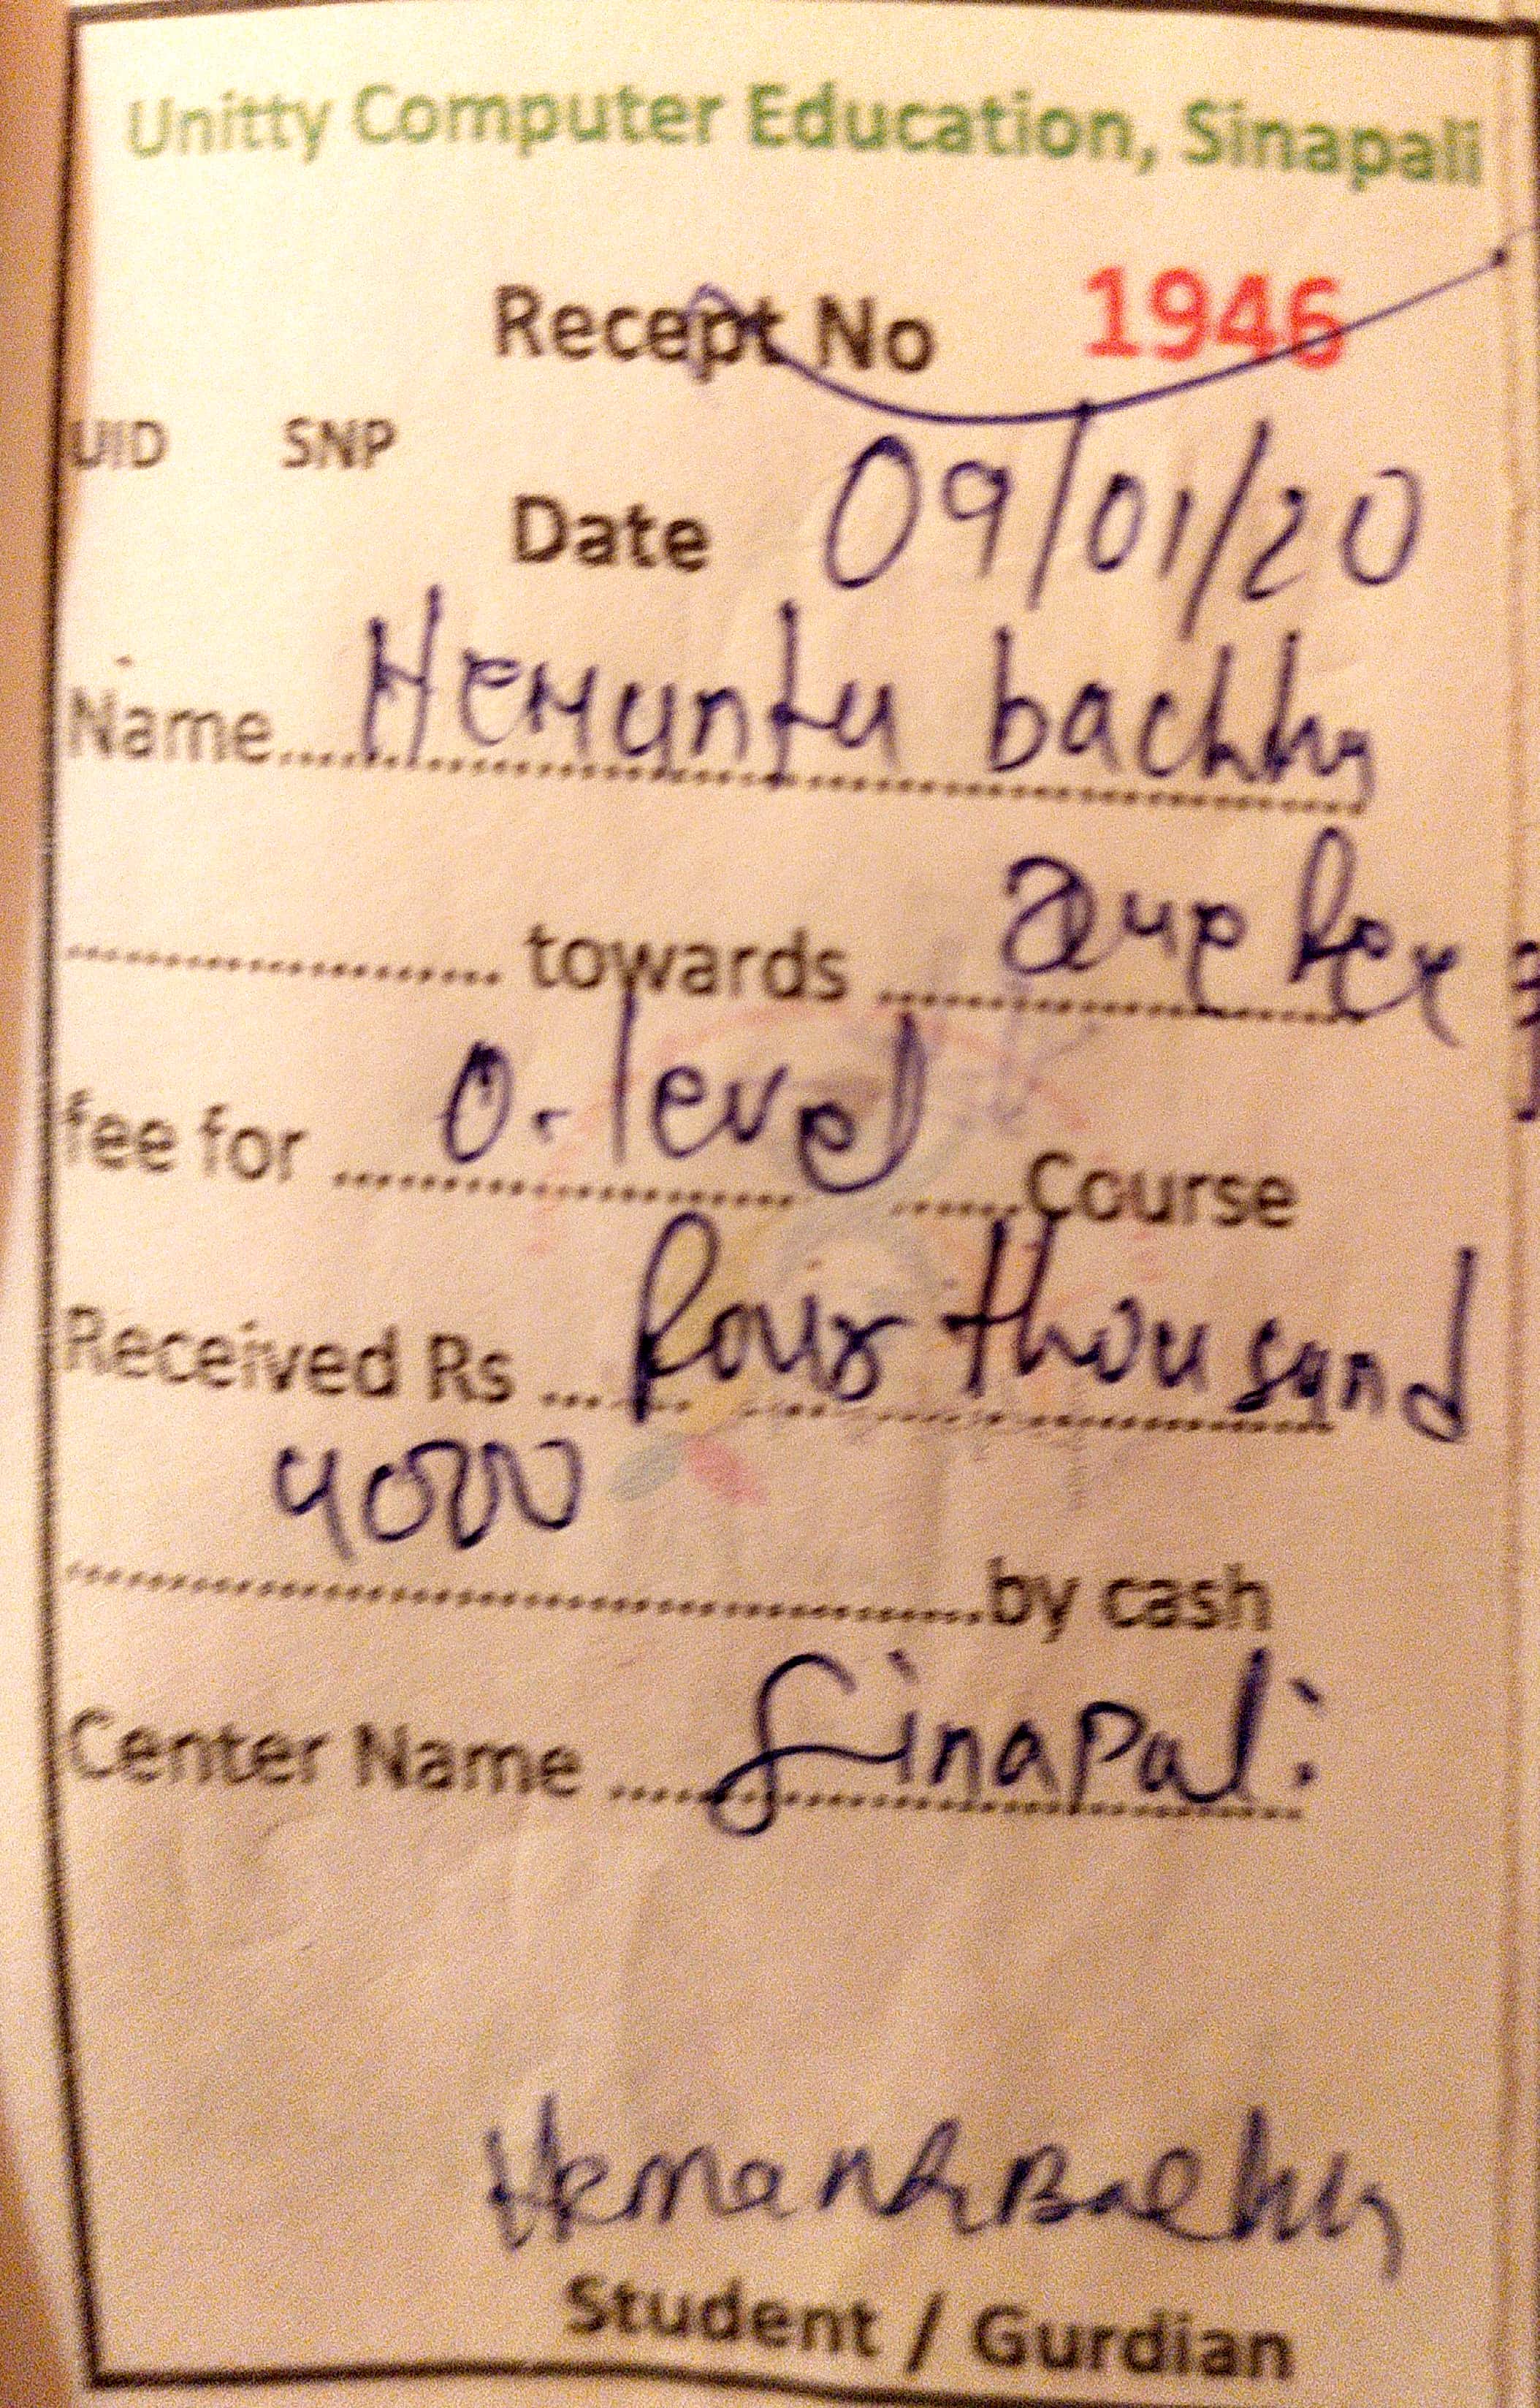 Unitty Computer Education, Sinapali
Recept No 1946
UID SNP
Date 09/01/20
Name Hemunta bachhu
towards
fee for O-level Course
Received Rs four thousand
4000
by cash
Center Name Sinapali
Student / Gurdian